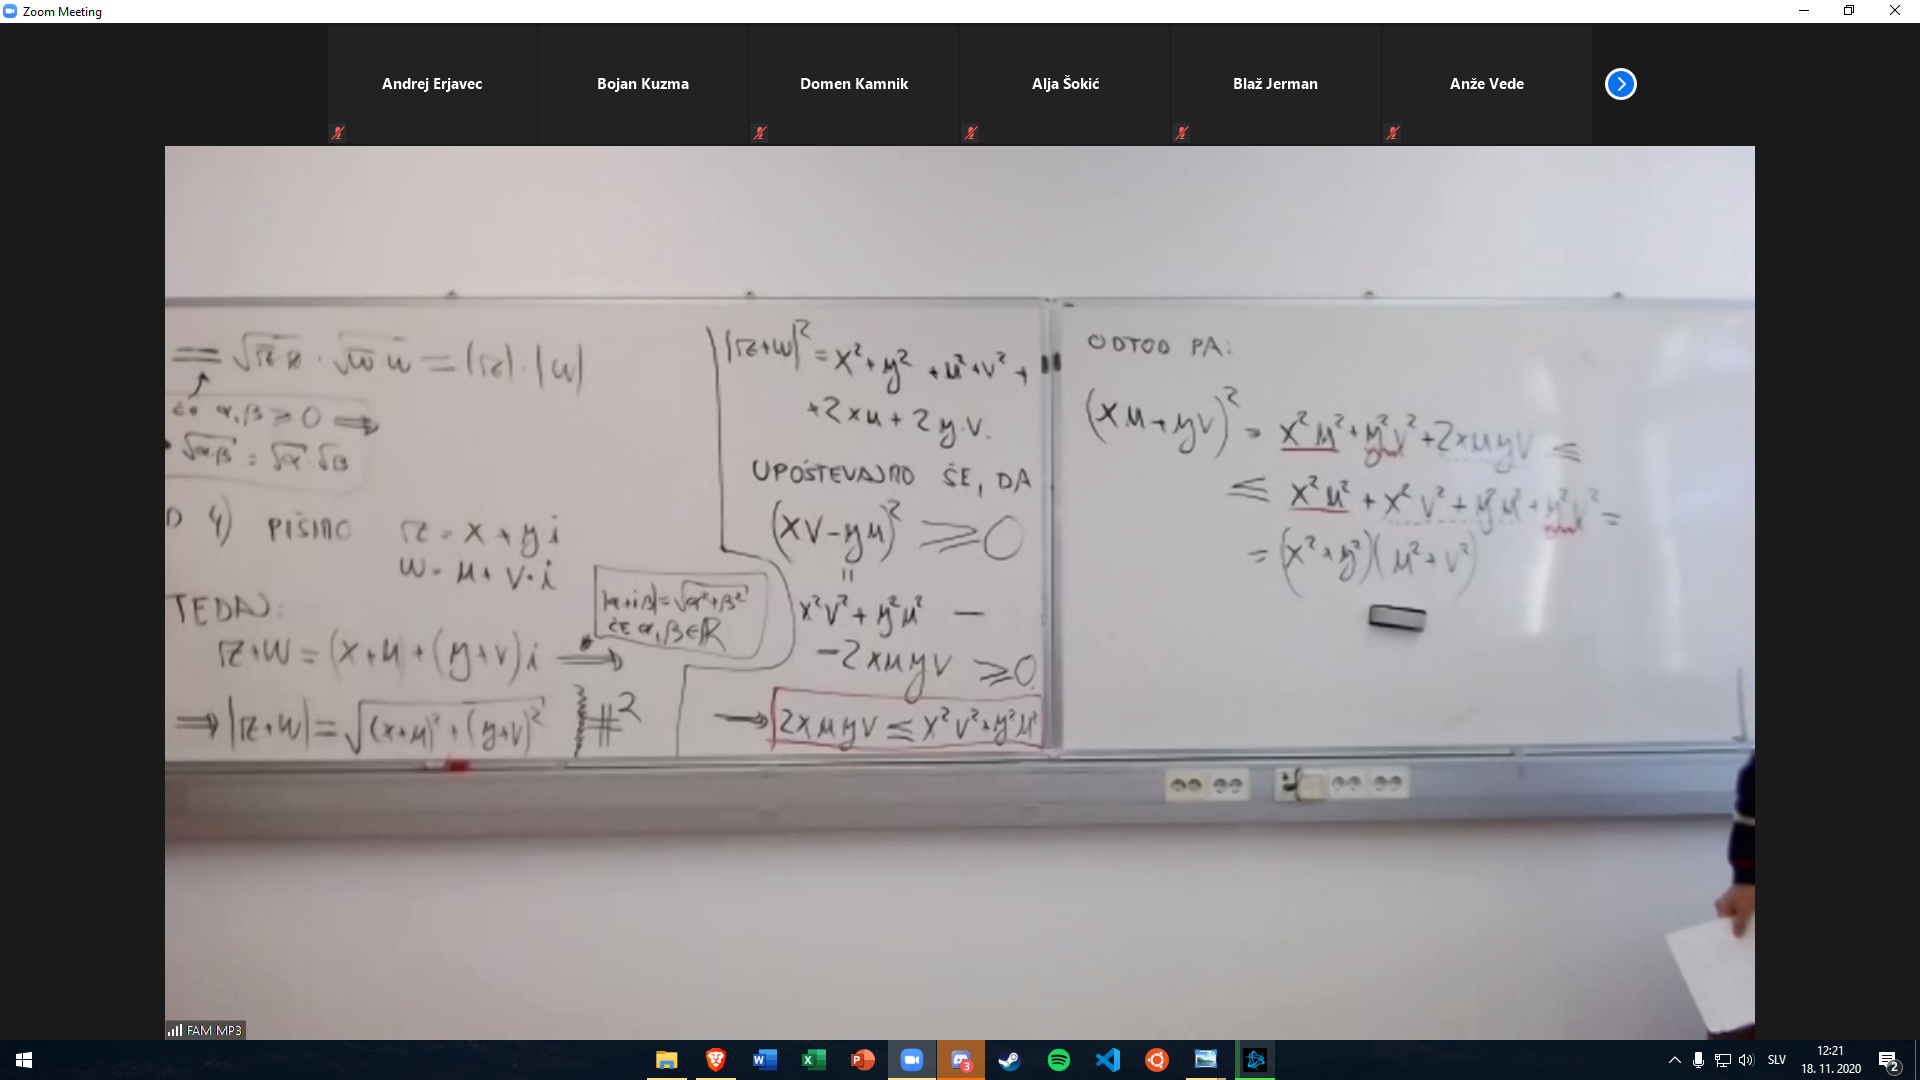 Zoom Meeting
Andrej Erjavec
Bojan Kuzma
Domen Kamnik
Alja Šokić
Blaž Jerman
Anže Vede
= √(z̄·z) · √(w̄·w) = |z|·|w|
če α,β ≥ 0 ⇒
√(α·β) = √α·√β
4) PIŠIMO z = x + yi
w = u + v·i
TEDAJ:
z+w = (x+u) + (y+v)i ⇒
|α+iβ| = √(α²+β²)
če α,β ∈ ℝ
⇒ |z+w| = √((x+u)² + (y+v)²) #²
|z+w|² = x² + y² + u² + v² +
+2xu + 2y·v.
UPOŠTEVAJMO ŠE, DA
(xv-yu)² ≥ 0
=
x²v² + y²u² −
−2xuyv ≥ 0.
→ 2xuyv ≤ x²v² + y²u²
ODTOD PA:
(xu+yv)² = x²u² + y²v² + 2xuyv ≤
≤ x²u² + x²v² + y²u² + y²v² =
= (x²+y²)(u²+v²)
FAM MP3
SLV
12:21
18. 11. 2020
3
2